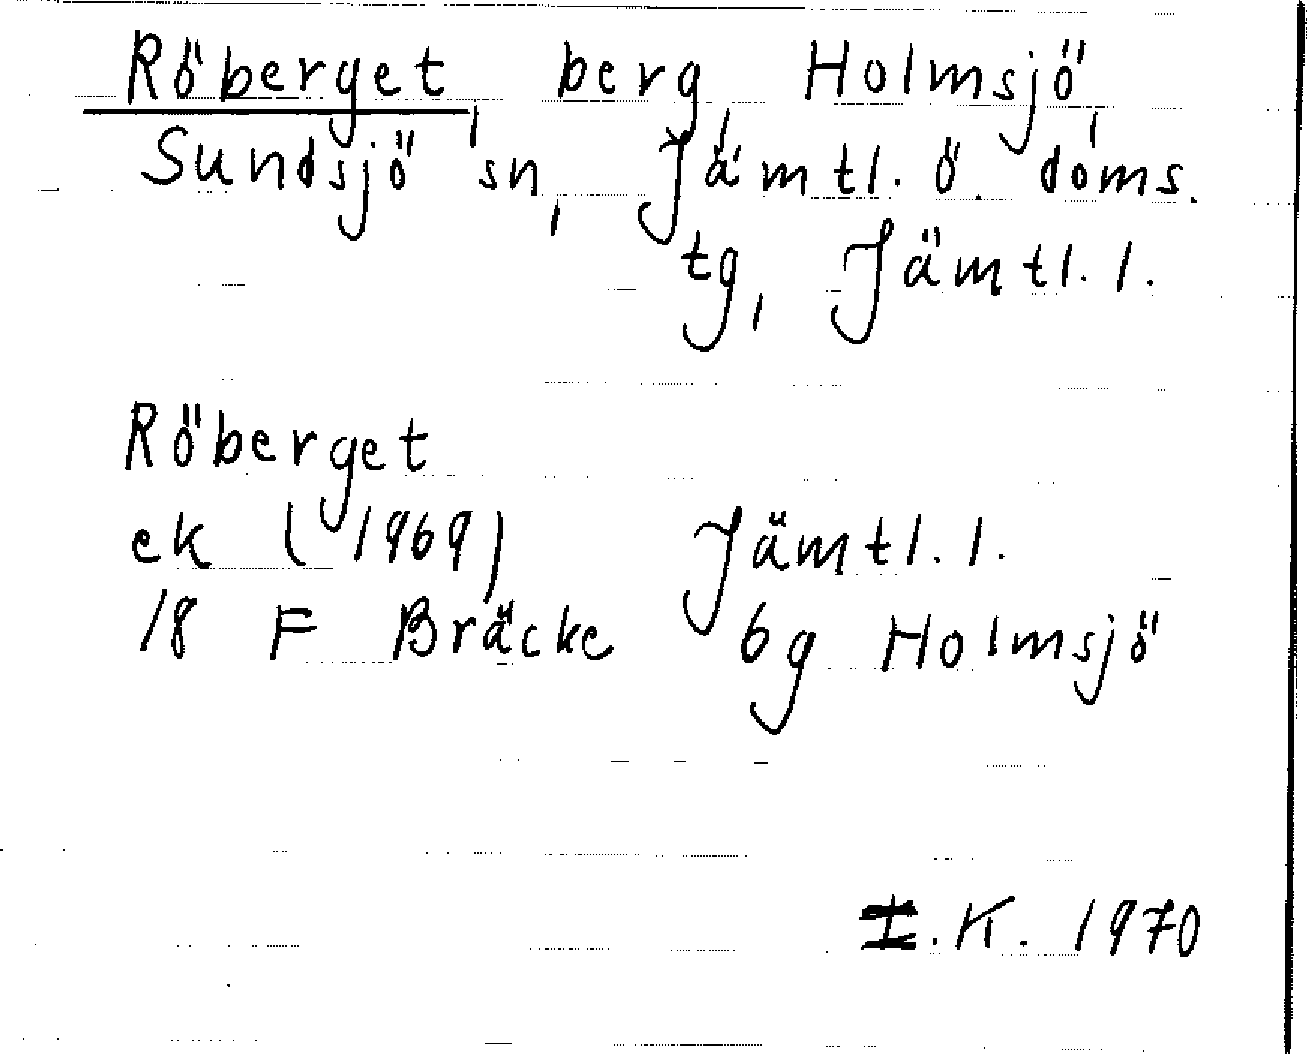 Röberget, berg, Holmsjö,
Sundsjö sn, Jämtl. ö. doms.
tg, Jämtl. l.
Röberget
ek (1969) Jämtl. l.
18 F Bräcke 6g Holmsjö
I.K. 1970